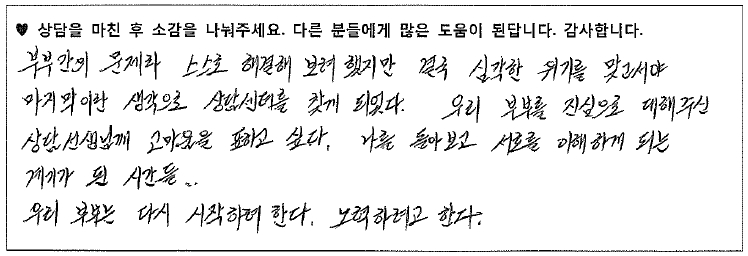 ♥ 상담을 마친 후 소감을 나눠주세요. 다른 분들에게 많은 도움이 된답니다. 감사합니다.
부부간의 문제라 스스로 해결해 보려 했지만 결국 심각한 위기를 맞고서야
마지막이란 생각으로 상담센터를 찾게 되었다. 우리 부부를 진심으로 대해주신
상담선생님께 고마움을 표하고 싶다. 나를 돌아보고 서로를 이해하게 되는
계기가 된 시간들...
우리 부부는 다시 시작하려 한다. 노력하려고 한다.